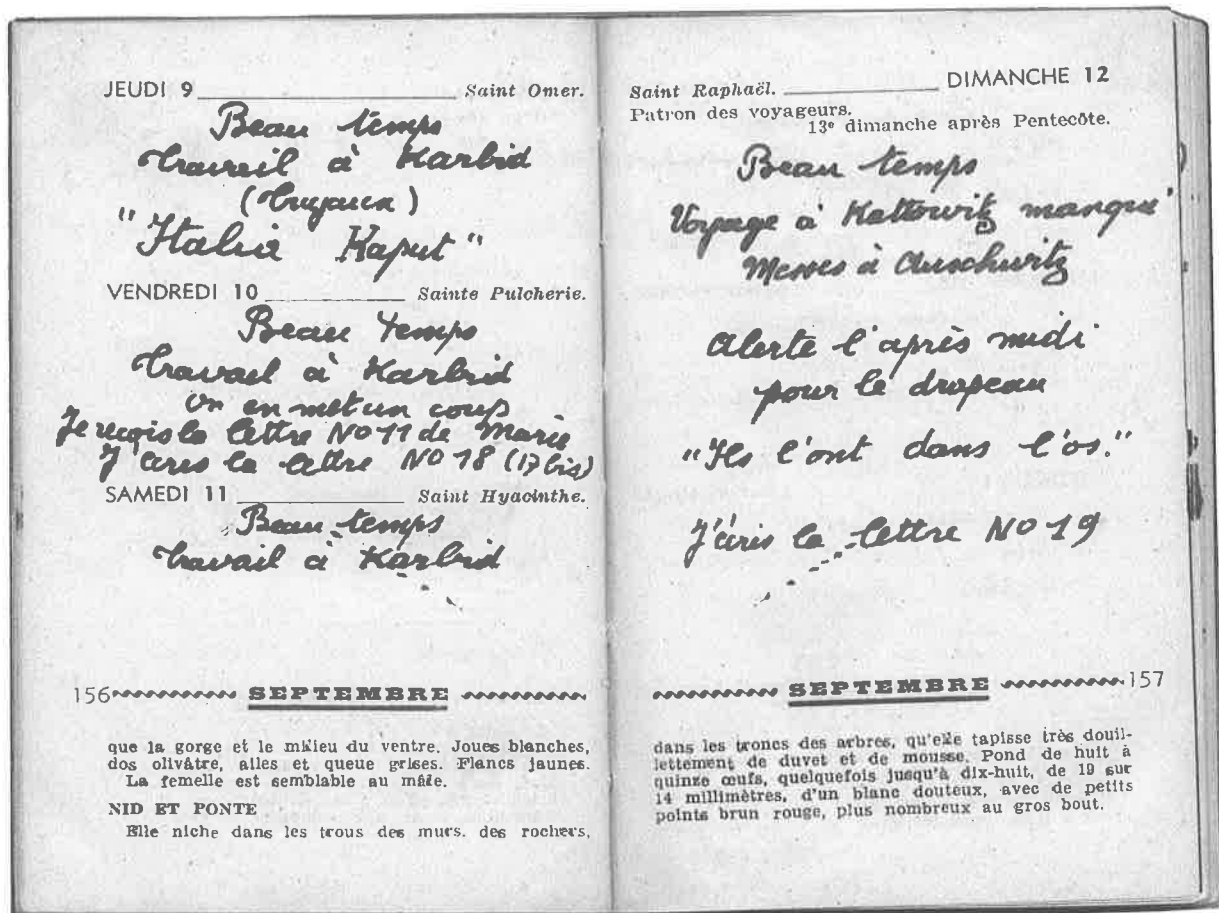 JEUDI 9 Saint Omer.
Beau temps
Travail à Karbid
(Tuyaux)
"Italia Kaput"
VENDREDI 10 Sainte Pulcherie.
Beau temps
Travail à Karbid
on en met un coup
Je reçois la lettre No 11 de Marie
J'écris la lettre No 18 (17 bis)
SAMEDI 11 Saint Hyacinthe.
Beau temps
Travail à Karbid
156 SEPTEMBRE
que la gorge et le milieu du ventre. Joues blanches,
dos olivâtre, ailes et queue grises. Flancs jaunes.
La femelle est semblable au mâle.
NID ET PONTE
Elle niche dans les trous des murs. des rochers,
Saint Raphaël. DIMANCHE 12
Patron des voyageurs.
13e dimanche après Pentecôte.
Beau temps
Voyage à Kattowitz manqué
Messes à Auschwitz
Alerte l'après midi
pour le drapeau
"Ils l'ont dans l'os."
J'écris la lettre No 19
SEPTEMBRE 157
dans les troncs des arbres, qu'elle tapisse très douil-
lettement de duvet et de mousse. Pond de huit à
quinze œufs, quelquefois jusqu'à dix-huit, de 19 sur
14 millimètres, d'un blanc douteux, avec de petits
points brun rouge, plus nombreux au gros bout.